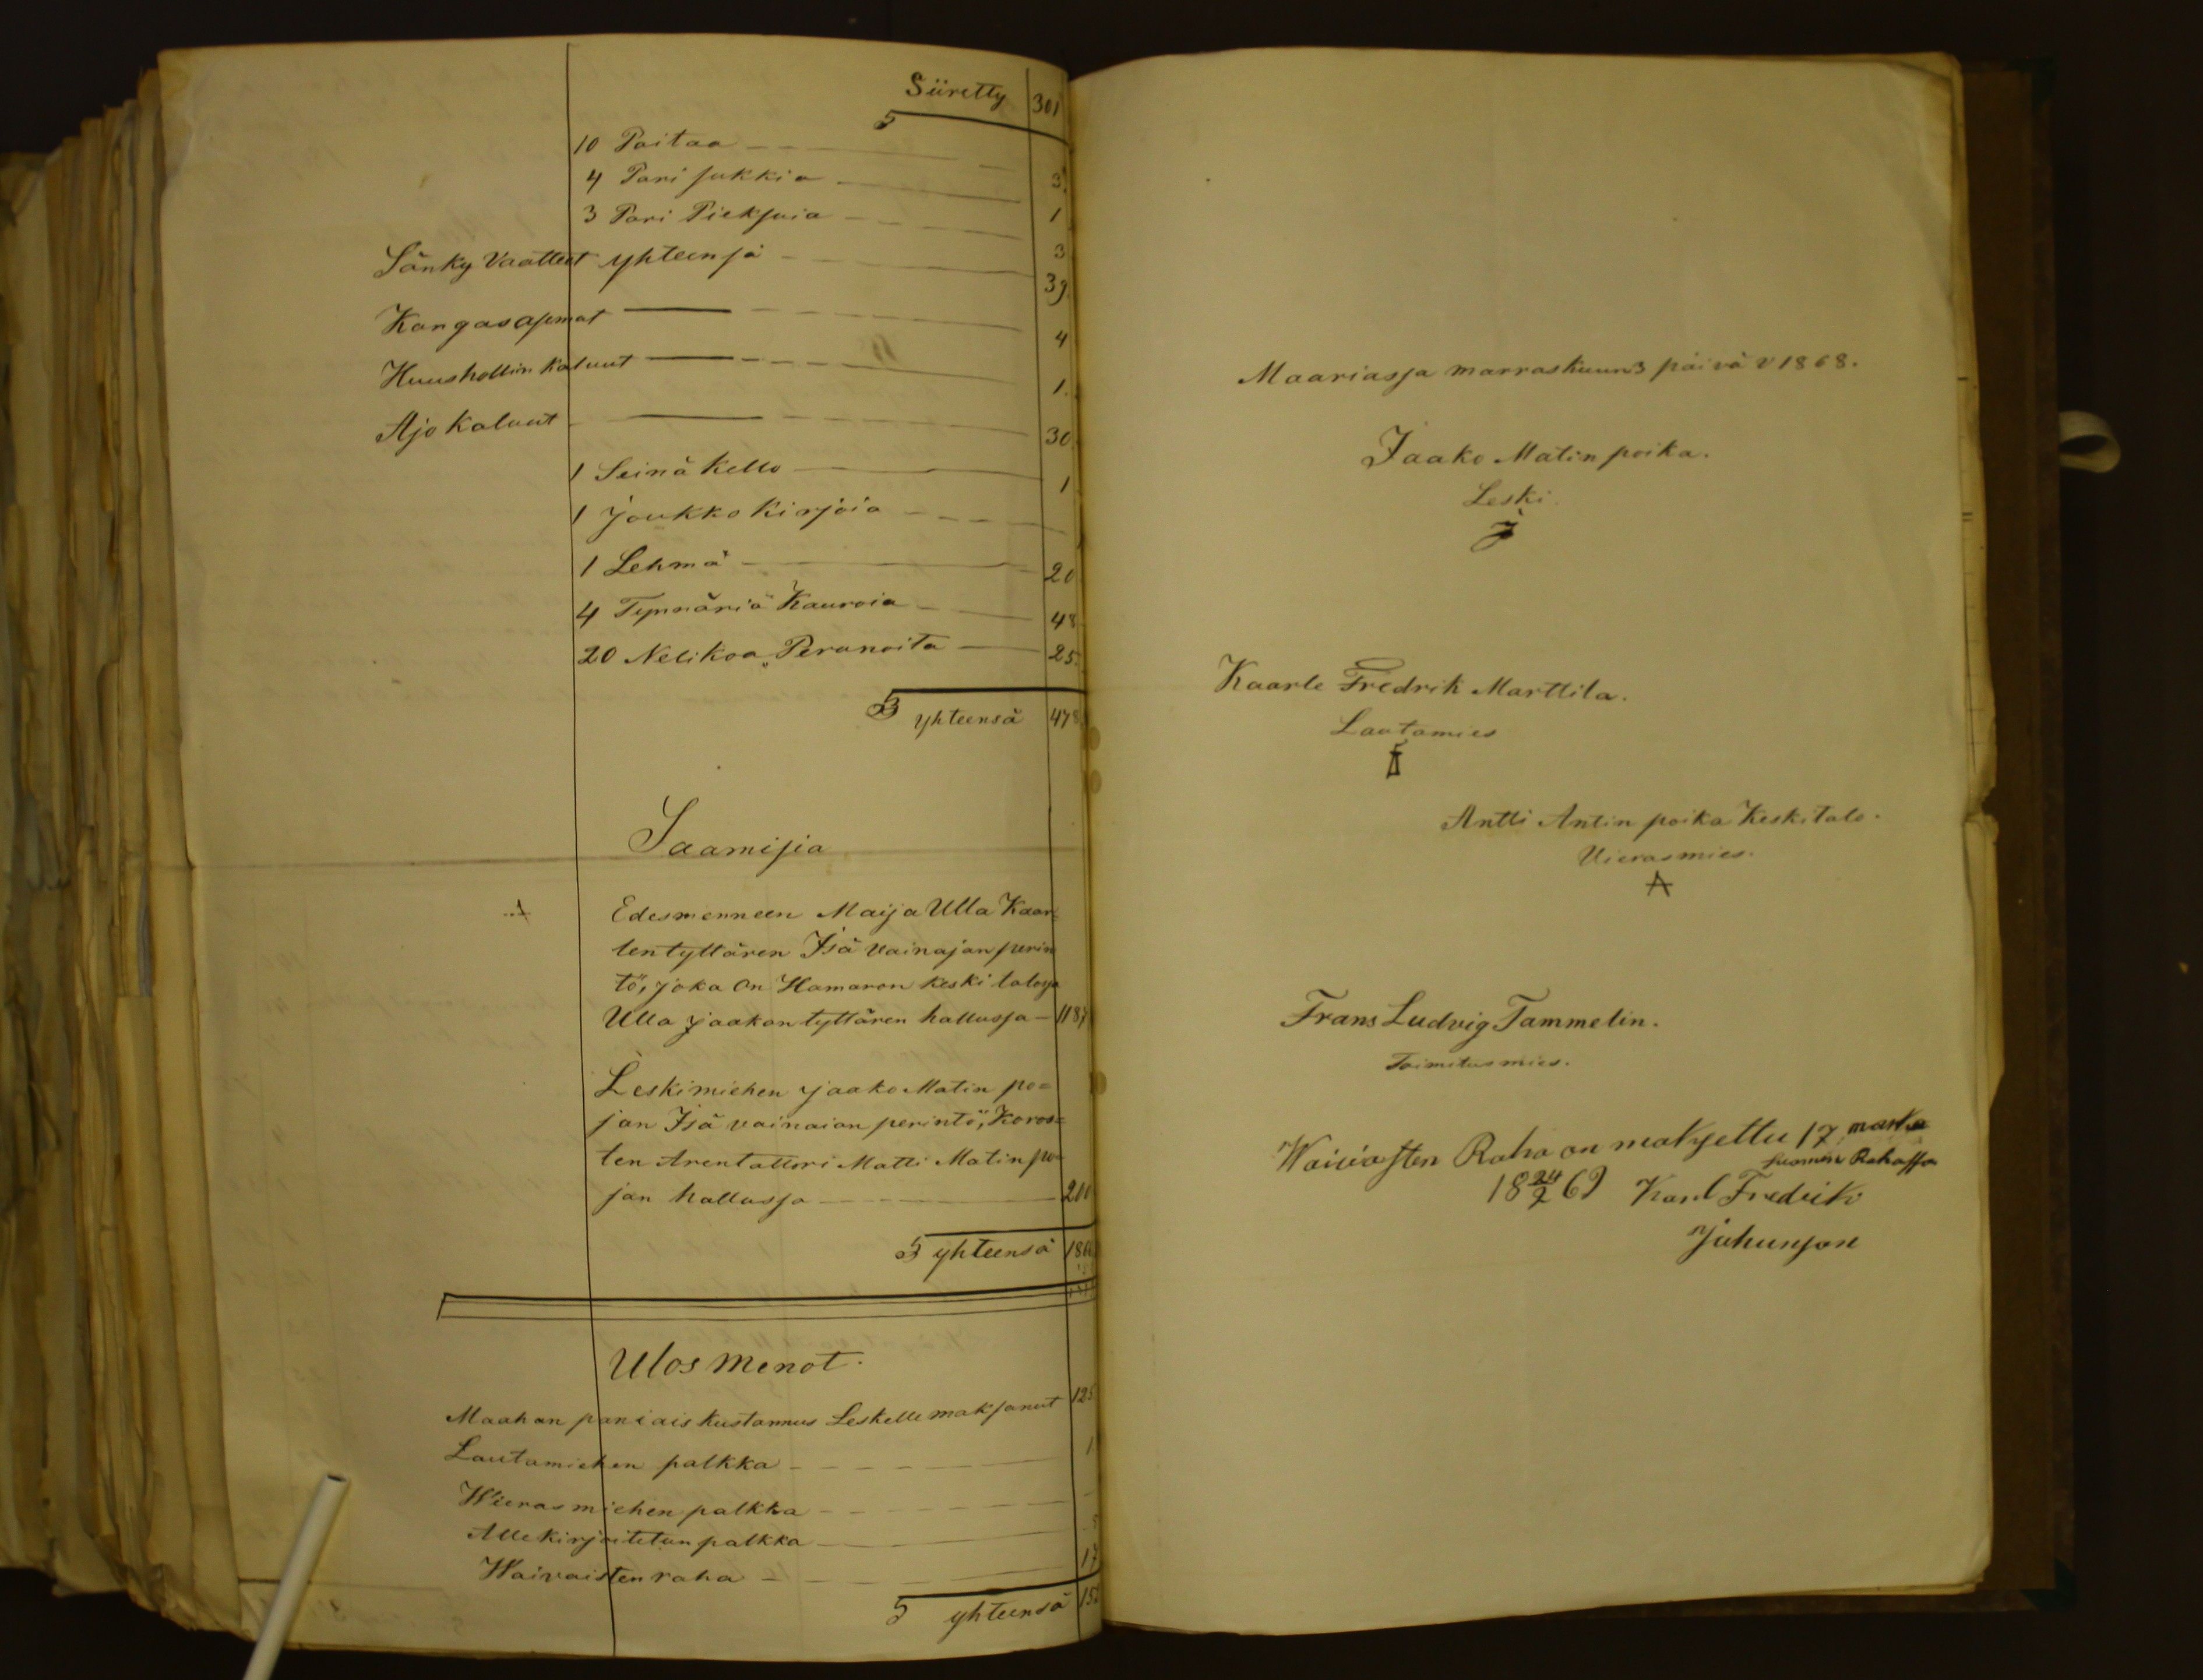 Siiretty 301
10 Paitaa
4 Pari sukkia 3
3 Pari Pieksuia 1
Sänky Vaatteet yhteensä 3
39
Kangasapmat 4
Huushollin kaluut 1
Ajo Kaluut 30
1 Seinä Kello 1
1 Joukko Kirjoia
1 Lehmä 20
4 Tynnäriä Kauroia 48
20 Nelikoa Perunoita 25
yhteensä 478
Saamisia
Edesmenneen Maija Ulla Kaar=
len tyttären Isä vainajan perin
tö, joka on Hamaron Keski talossa
Ulla Jaakon tyttären hallussa 1187
Leskimiehen Jaako Matin po=
jan Isä vainaian perintö, Koros=
ten Arentattori Matti Matin po=
jan hallussa 200
yhteensä
Ulos Menot.
Maahan paniais kustannus Leskelle maksanut 125
Lautamiehen palkka 1
Wierasmiehen palkka
Allekirjoitetun palkka
Waivaisten raha 17
yhteensä
Maariassa marraskuun 3 päivä v 1868.
Jaako Matin poika.
Leski.
J
Kaarle Fredrik Marttila.
Lautamies
Antti Antin poika Keskitalo.
Vierasmies.
A
Frans Ludvig Tammelin.
Toimitusmies.
Waiviasten Raha on maksettu 17 marka
suomen Rahassa
18 24/2 69 Karl Fredrik
Juhunson